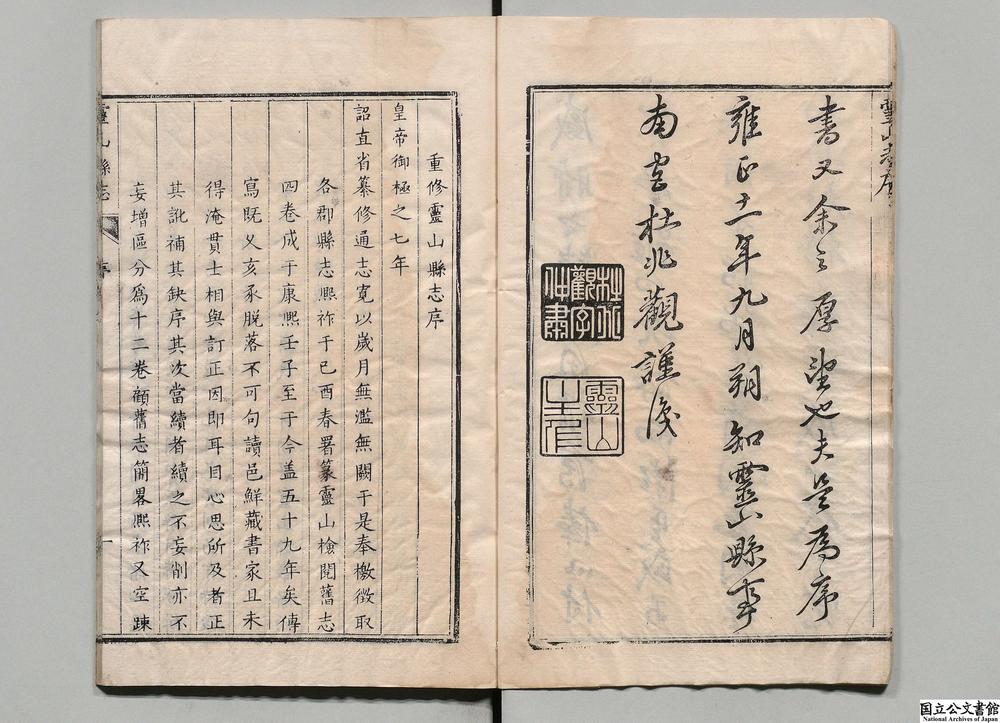 靈山志序
書又余之厚望也夫是為序
雍正十一年九月朔知靈山縣事
南宮杜兆觀謹識
靈山
重修靈山縣志序
皇帝御極之七年
詔直省纂修通志寛以歲月無濫無闕于是奉檄徵取
各郡縣志熈祚于己酉春署篆靈山檢閱舊志
四卷成于康熈壬子至于今盖五十九年矣傳
寫既乆亥豕脱落不可句讀邑鮮藏書家且未
得淹貫士相與訂正因即耳目心思所及者正
其訛補其缺序其次當續者續之不妄削亦不
妄增區分爲十二卷顧舊志簡畧熈祚又空踈
靈山縣志
序
一
国立公文書館
National Archives of Japan